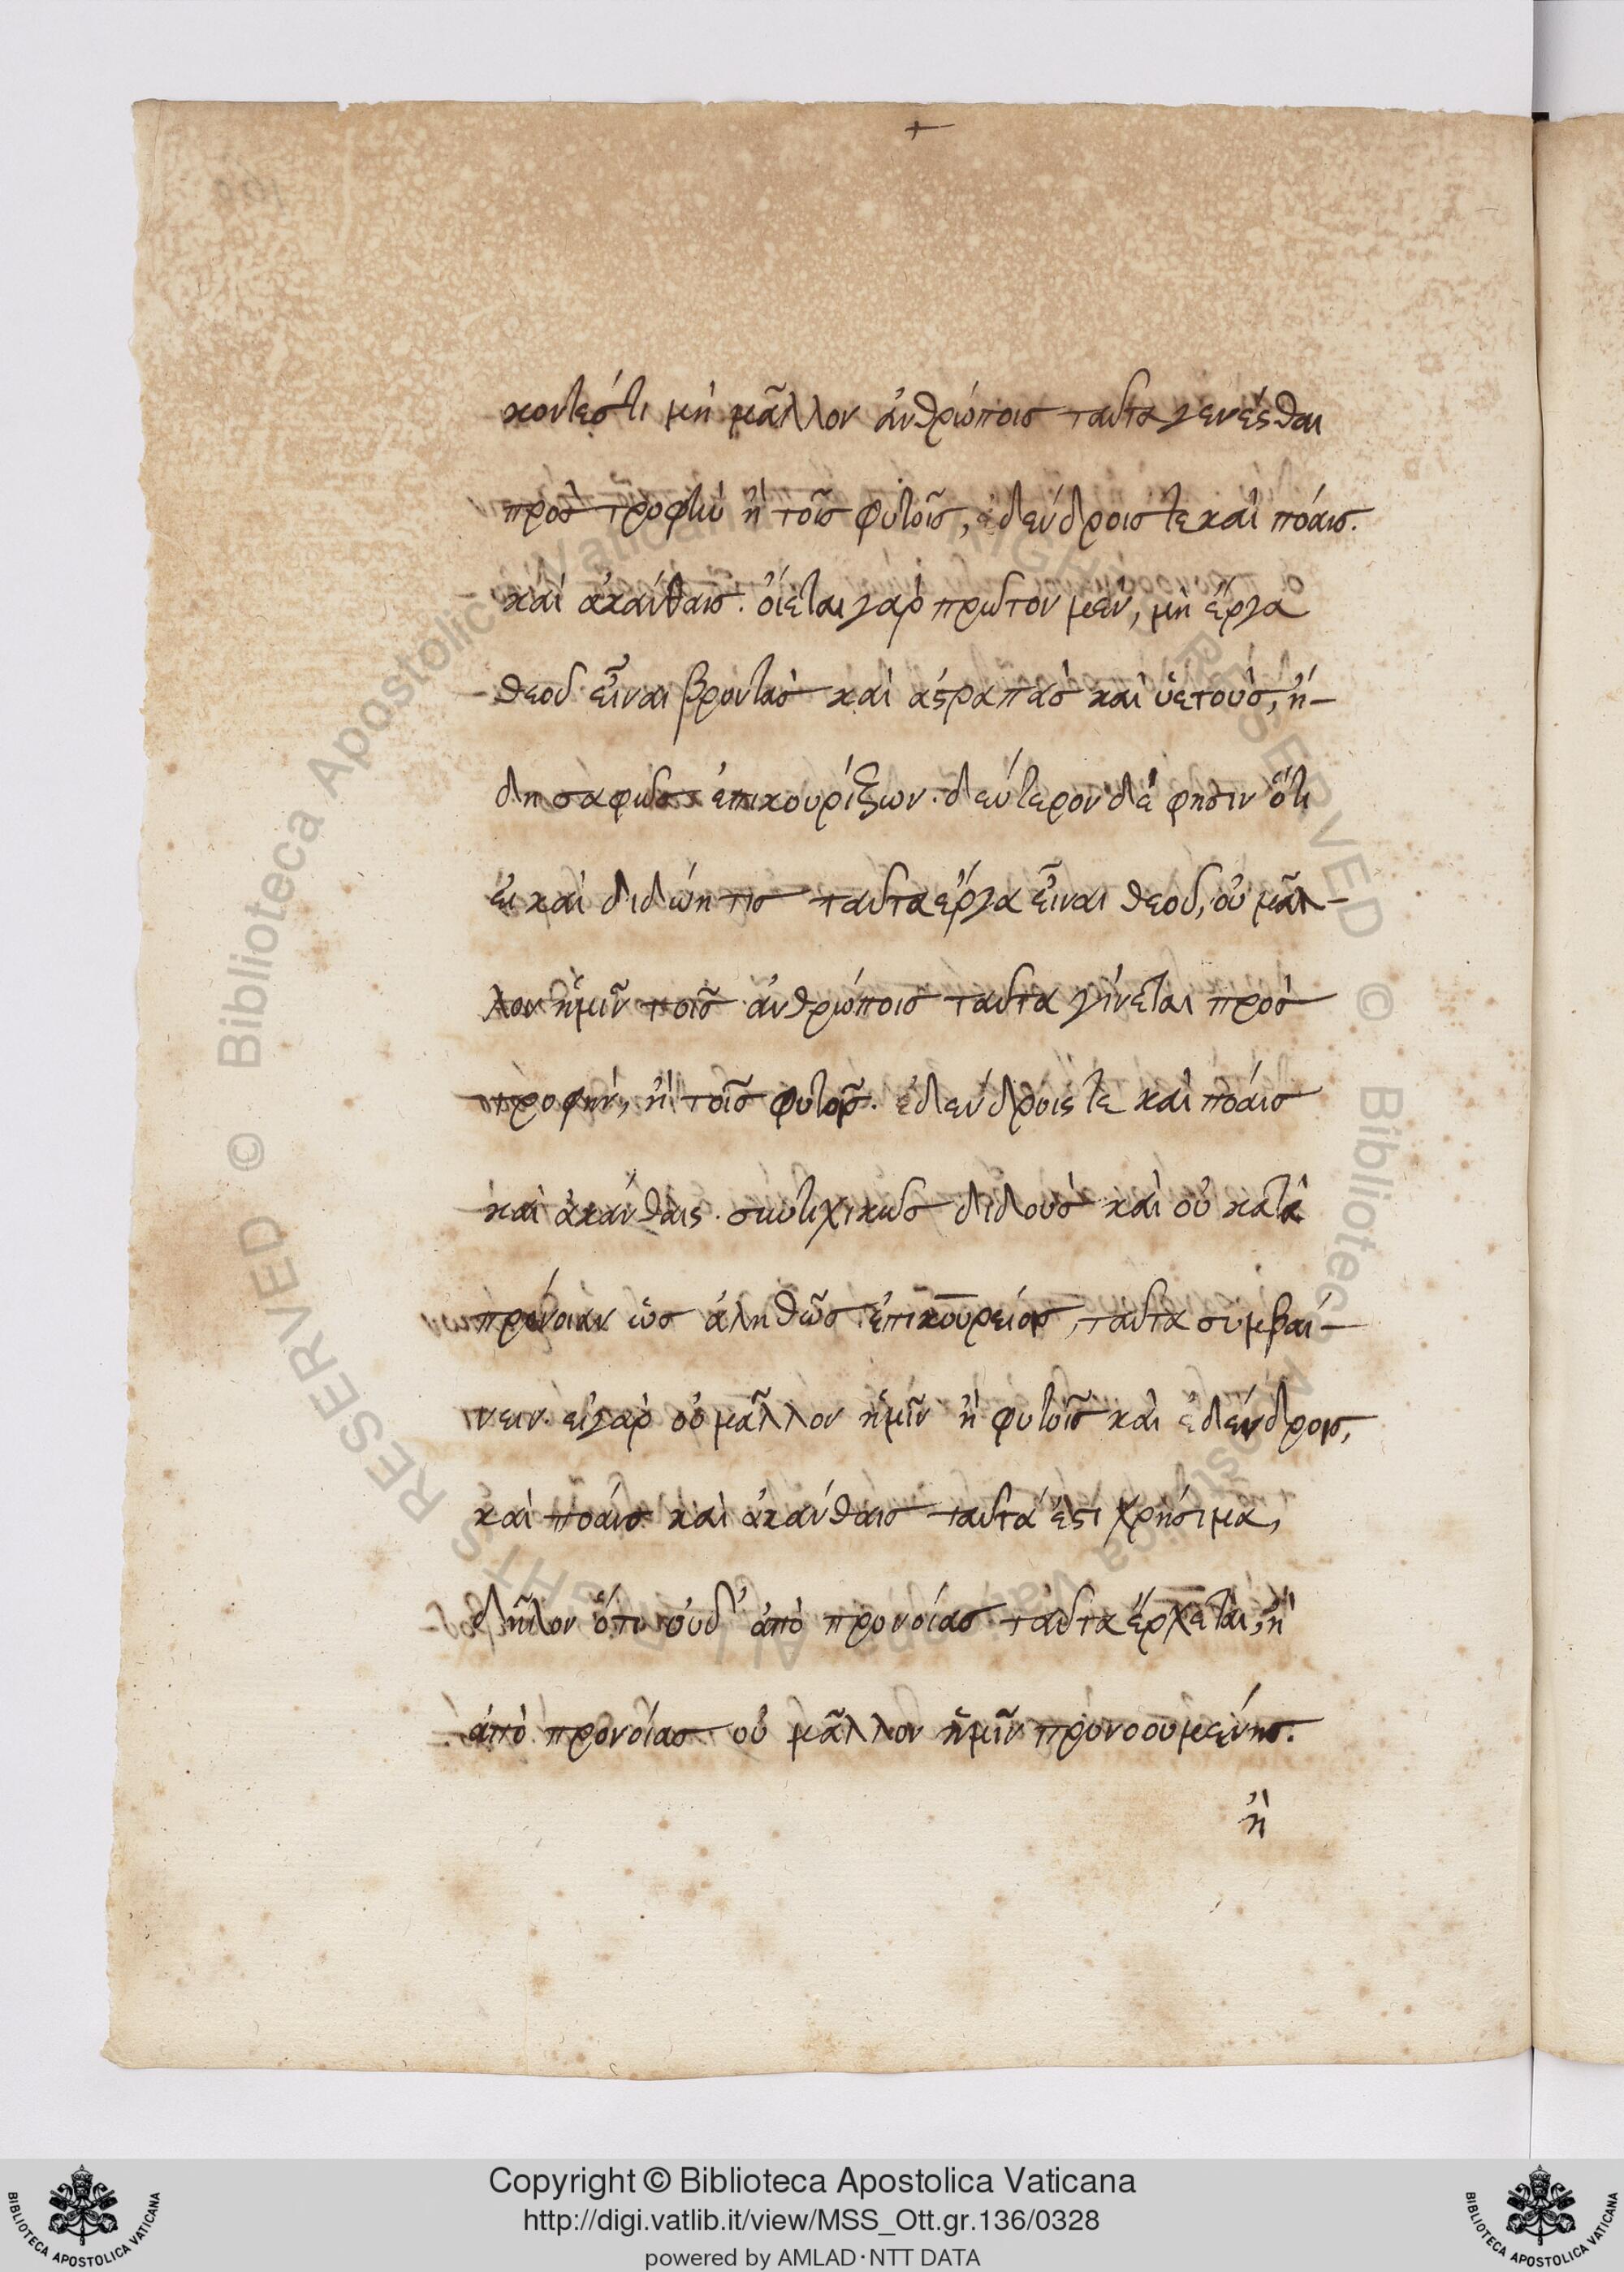 +
κοντεστι μὴ μᾶλλον ἀνθρώποις ταῦτα γενέσθαι
πρὸς τροφὴν ἢ τοῖς φυτοῖς, δένδροις τε καὶ πόαις.
καὶ ἀκάνθαις. οἴεται γὰρ πρῶτον μὲν, μὴ ἔργα
θεοῦ εἶναι βροντὰς καὶ ἀστραπὰς καὶ ὑετοὺς, ἤ-
δη σαφῶς ἐπικουρίζων. δεύτερον δέ φησιν ὅτι
εἰ καὶ διδώη τις ταῦτα ἔργα εἶναι θεοῦ, οὐ μᾶλ-
λον ἡμῖν τοῖς ἀνθρώποις ταῦτα γίνεται πρὸς
τροφὴν, ἢ τοῖς φυτοῖς. δένδροις τε καὶ πόαις
καὶ ἀκάνθαις. συντυχικῶς διδοὺς καὶ οὐ κατὰ
πρόνοιαν ὡς ἀληθῶς ἐπικούρειος, ταῦτα συμβαί-
νειν. εἰ γὰρ οὐ μᾶλλον ἡμῖν ἢ φυτοῖς καὶ δένδροις,
καὶ πόαις καὶ ἀκάνθαις ταῦτά ἐστι χρήσιμα,
δῆλον ὅτι οὐδ' ἀπὸ προνοίας ταῦτα ἔρχεται, ἢ
ἀπὸ προνοίας οὐ μᾶλλον ἡμῖν προνοουμένης.
ἢ
Copyright © Biblioteca Apostolica Vaticana
http://digi.vatlib.it/view/MSS_Ott.gr.136/0328
powered by AMLAD·NTT DATA